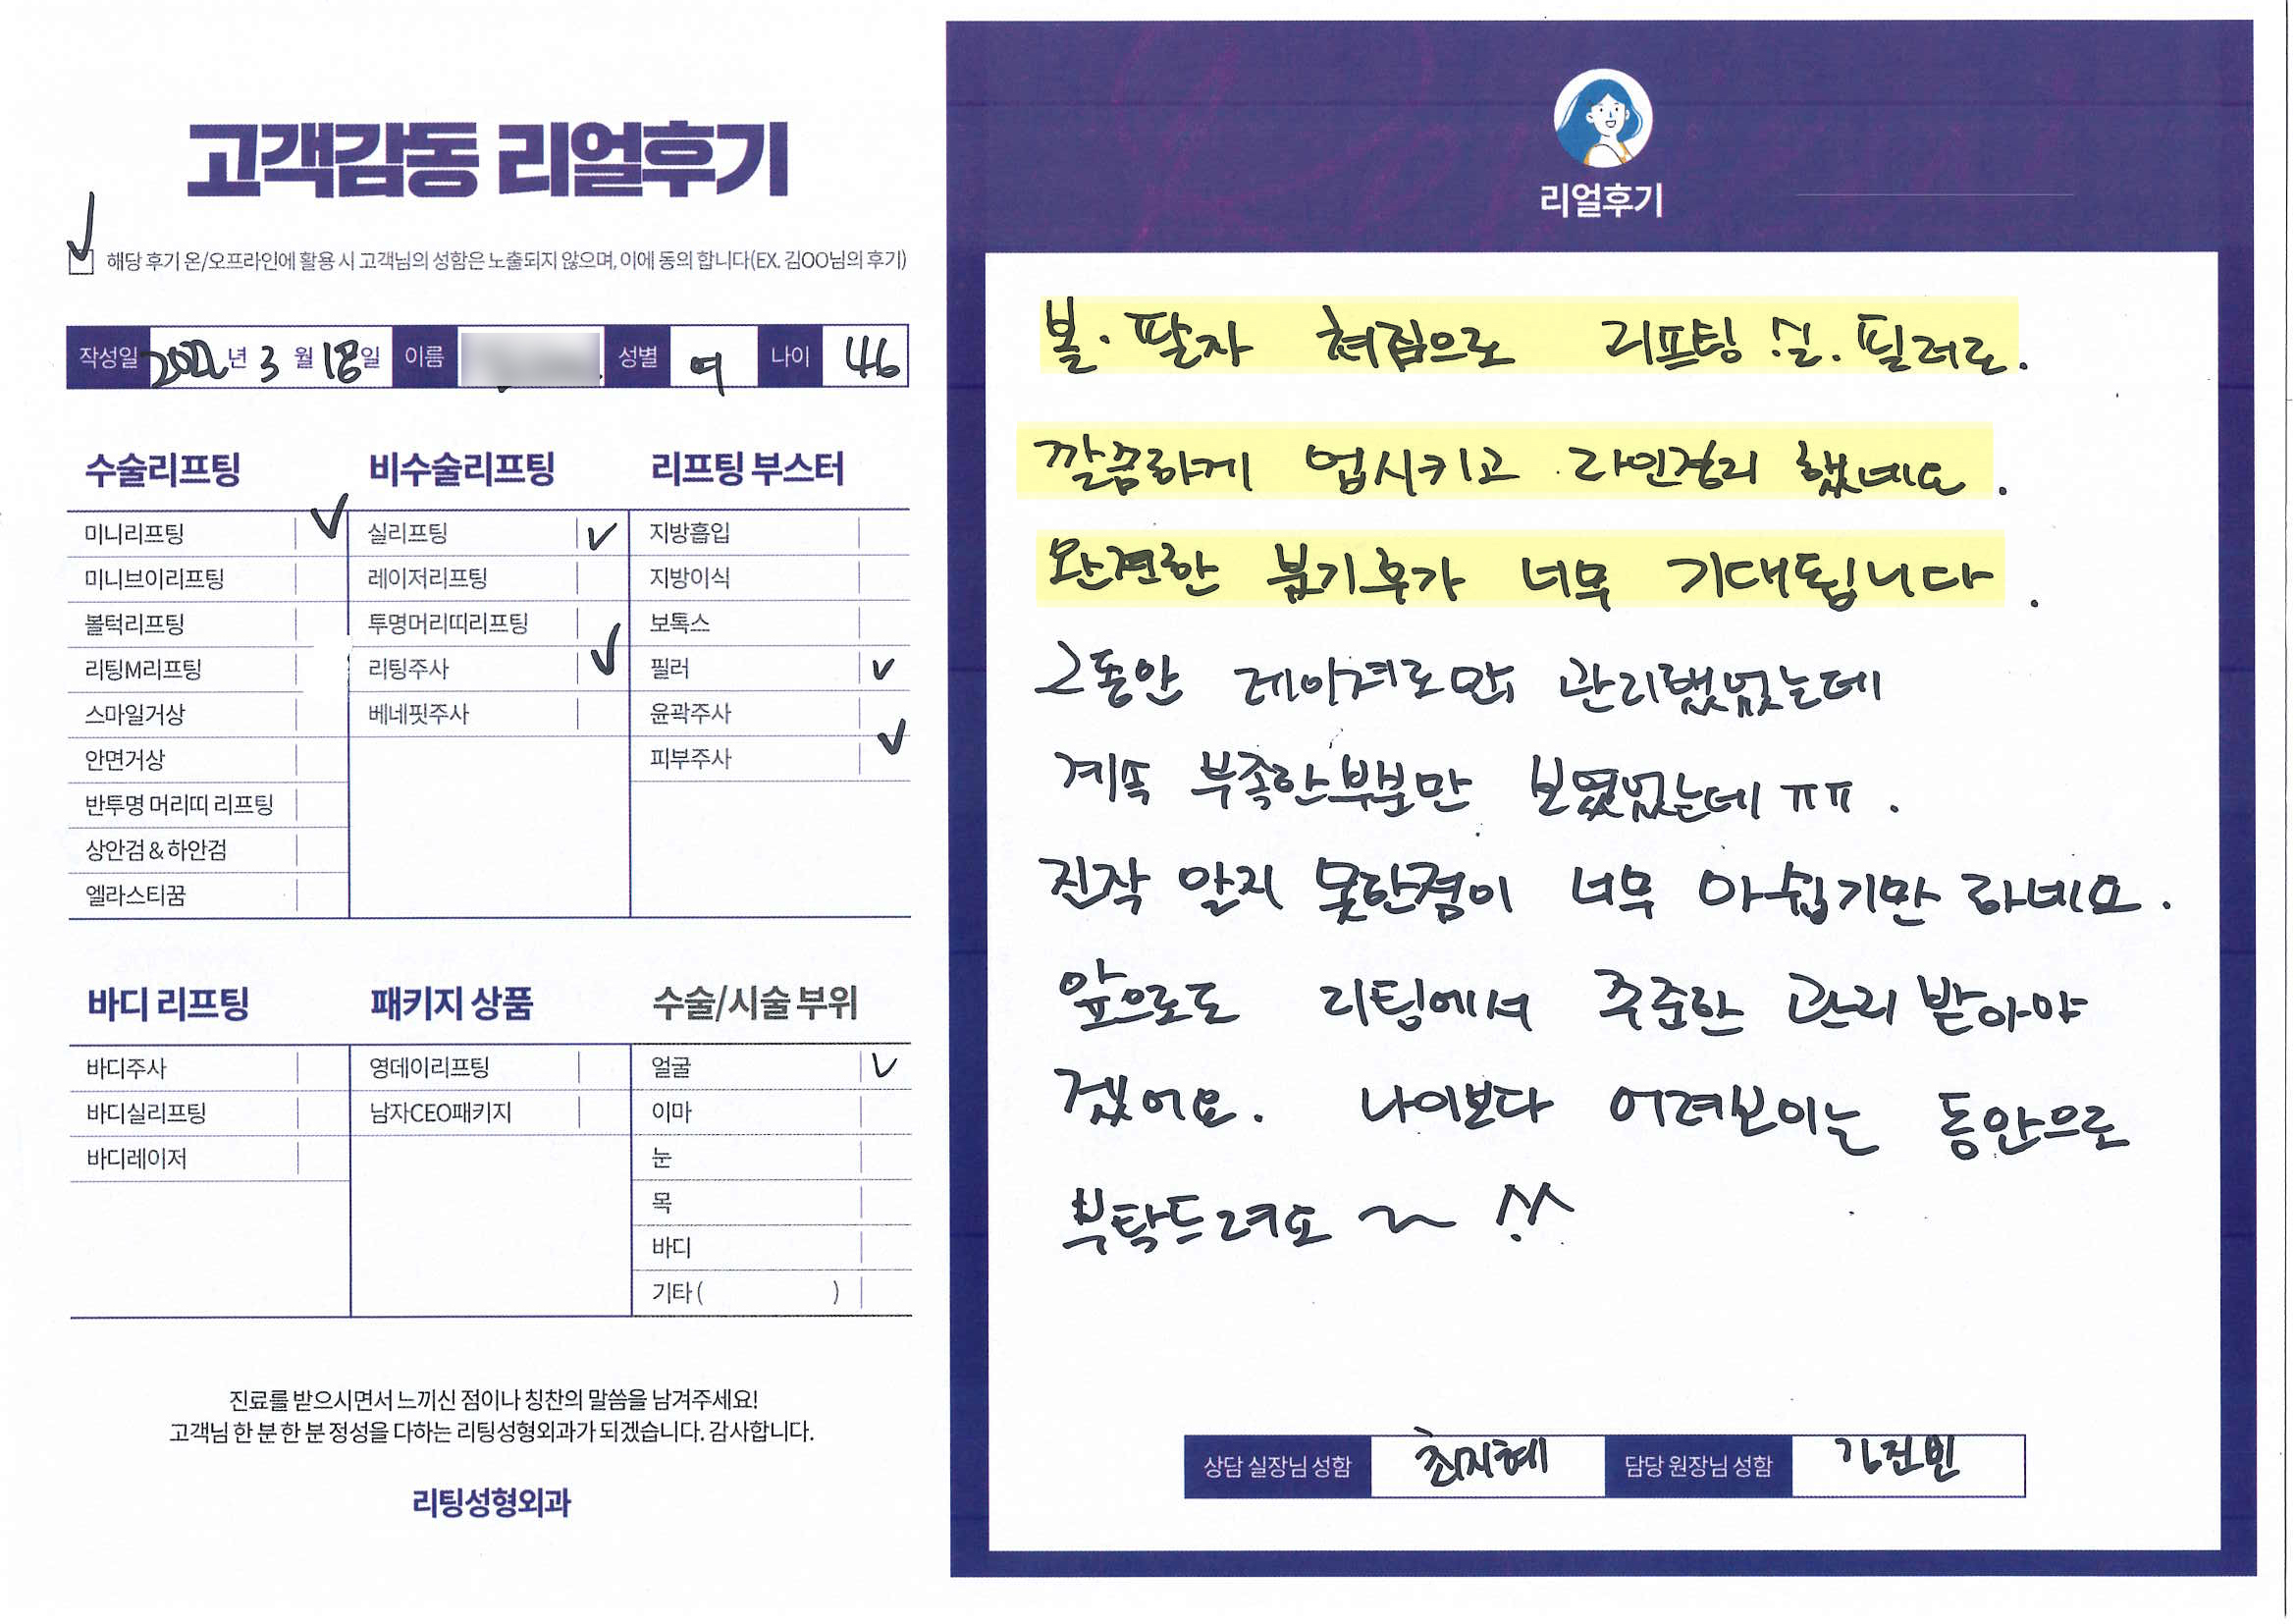 고객감동 리얼후기
해당 후기 온/오프라인에 활용 시 고객님의 성함은 노출되지 않으며, 이에 동의 합니다(EX. 김OO님의 후기)
작성일 2022년 3월 18일 이름 성별 여 나이 46
수술리프팅 비수술리프팅 리프팅 부스터
미니리프팅 실리프팅 지방흡입
미니브이리프팅 레이저리프팅 지방이식
볼턱리프팅 투명머리띠리프팅 보톡스
리팅M리프팅 리팅주사 필러
스마일거상 베네핏주사 윤곽주사
안면거상 피부주사
반투명 머리띠 리프팅
상안검 & 하안검
엘라스티꿈
바디 리프팅 패키지 상품 수술/시술 부위
바디주사 영데이리프팅 얼굴
바디실리프팅 남자CEO패키지 이마
바디레이저 눈
목
바디
기타 ( )
진료를 받으시면서 느끼신 점이나 칭찬의 말씀을 남겨주세요!
고객님 한 분 한 분 정성을 다하는 리팅성형외과가 되겠습니다. 감사합니다.
리팅성형외과
리얼후기
볼. 팔자 쳐짐으로 리프팅 실. 필러로.
깔끔하게 업시키고 라인정리 했네요.
완전한 붓기후가 너무 기대됩니다.
그동안 레이져로만 관리했었는데
계속 부족한부분만 보였었는데 ㅠㅠ.
진작 알지 못한점이 너무 아쉽기만 하네요.
앞으로도 리팅에서 꾸준한 관리 받아야
겠어요. 나이보다 어려보이는 동안으로
부탁드려요 ~ ^^
상담 실장님 성함 최지혜 담당 원장님 성함